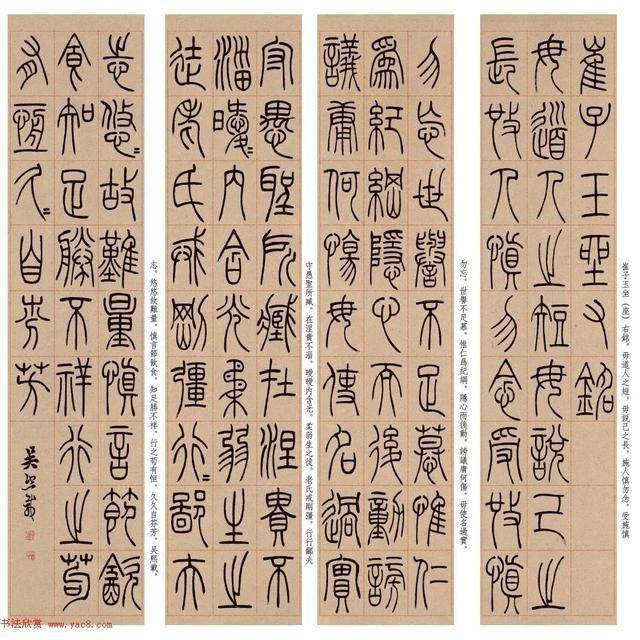 崔子玉坐右銘
毋道人之短毋說己之
長施人慎勿念受施慎
崔子玉坐（座）右銘。毋道人之短，毋說己之長，施人慎勿念，受施慎
勿忘世譽不足慕惟仁
爲紀綱隱心而後動謗
議庸何傷毋使名過實
勿忘。世譽不足慕，惟仁爲紀綱，隱心而後動，謗議庸何傷。毋使名過實，
守愚聖所臧在涅貴不
淄曖曖內含光柔弱生之
徒老氏戒剛彊行行鄙夫
守愚聖所臧，在涅貴不淄，曖曖內含光。柔弱生之徒，老氏戒剛彊。行行鄙夫
志悠悠故難量慎言節飲
食知足勝不祥行之苟
有恆久久自芬芳
吳熙載
志，悠悠故難量。慎言節飲食，知足勝不祥。行之苟有恒，久久自芬芳。吳熙載。
书法欣赏 www.yac8.com